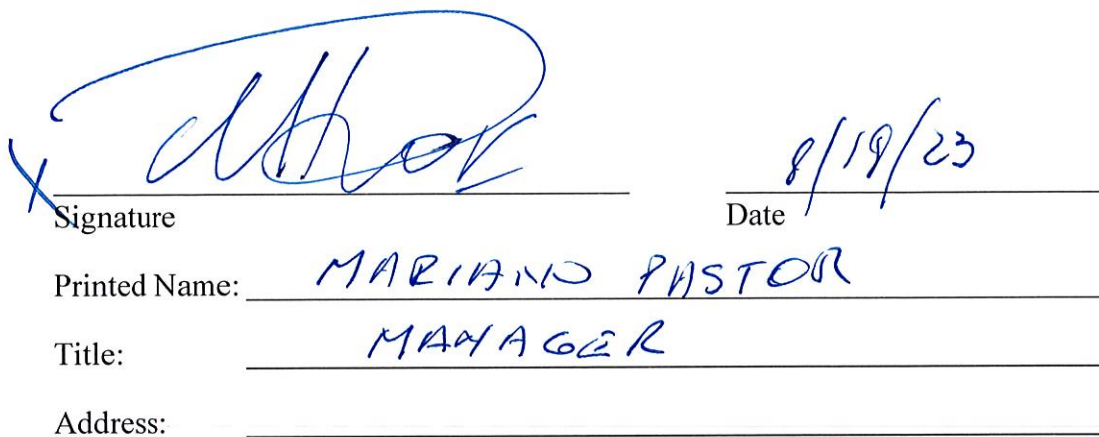 X
8/18/23
Signature Date
Printed Name: MARIANO PASTOR
Title: MANAGER
Address: